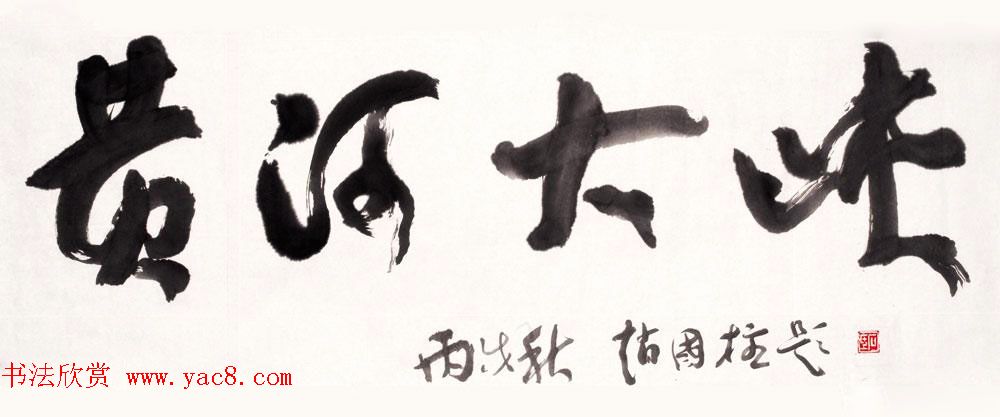 黄河大峡
丙戌秋 赵国柱题
书法欣赏 www.yac8.com